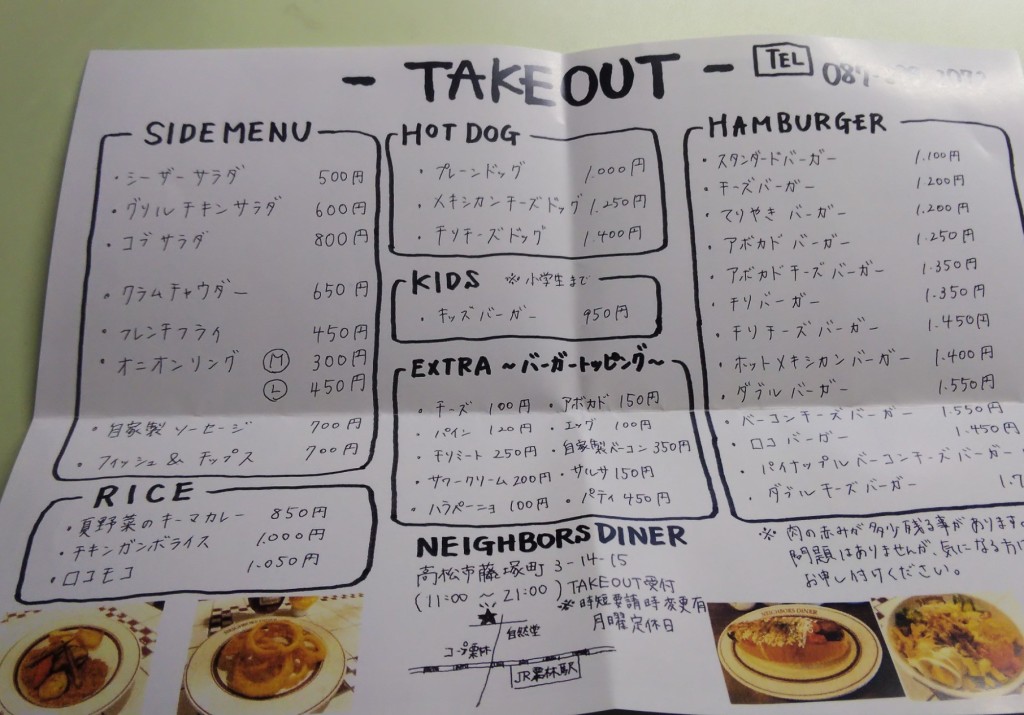 - TAKEOUT -
TEL 087-
SIDE MENU
・シーザーサラダ 500円
・グリルチキンサラダ 600円
・コブサラダ 800円
・クラムチャウダー 650円
・フレンチフライ 450円
・オニオンリング Ⓜ 300円
Ⓛ 450円
・自家製ソーセージ 700円
・フィッシュ & チップス 700円
RICE
・夏野菜のキーマカレー 850円
・チキンガンボライス 1.000円
・ロコモコ 1.050円
HOT DOG
・プレーンドッグ 1.000円
・メキシカンチーズドッグ 1.250円
・チリチーズドッグ 1.400円
KIDS ※小学生まで
・キッズバーガー 950円
EXTRA ~バーガートッピング~
・チーズ 100円 ・アボカド 150円
・パイン 120円 ・エッグ 100円
・チリミート 250円 ・自家製ベーコン 350円
・サワークリーム 200円 ・サルサ 150円
・ハラペーニョ 100円 ・パティ 450円
HAMBURGER
・スタンダードバーガー 1.100円
・チーズバーガー 1200円
・てりやきバーガー 1.200円
・アボカドバーガー 1.250円
・アボカドチーズバーガー 1.350円
・チリバーガー 1.350円
・チリチーズバーガー 1.450円
・ホットメキシカンバーガー 1.400円
・ダブルバーガー 1.550円
・ベーコンチーズバーガー 1.550円
・ロコバーガー 1.450円
・パイナップルベーコンチーズバーガー
・ダブルチーズバーガー 1.7
※肉の赤みが多少残る事があります
問題はありませんが、気になる方は
お申し付けください。
NEIGHBORS DINER
高松市藤塚町 3-14-15
(11:00 ~ 21:00) TAKEOUT受付
※時短要請時変更有
月曜定休日
自然堂
コープ栗林
JR栗林駅
NEIGHBORS DINER